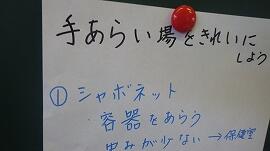 手あらい場をきれいに
しよう
① シャボネット
・容器をあらう
中みが少ない → 保健室